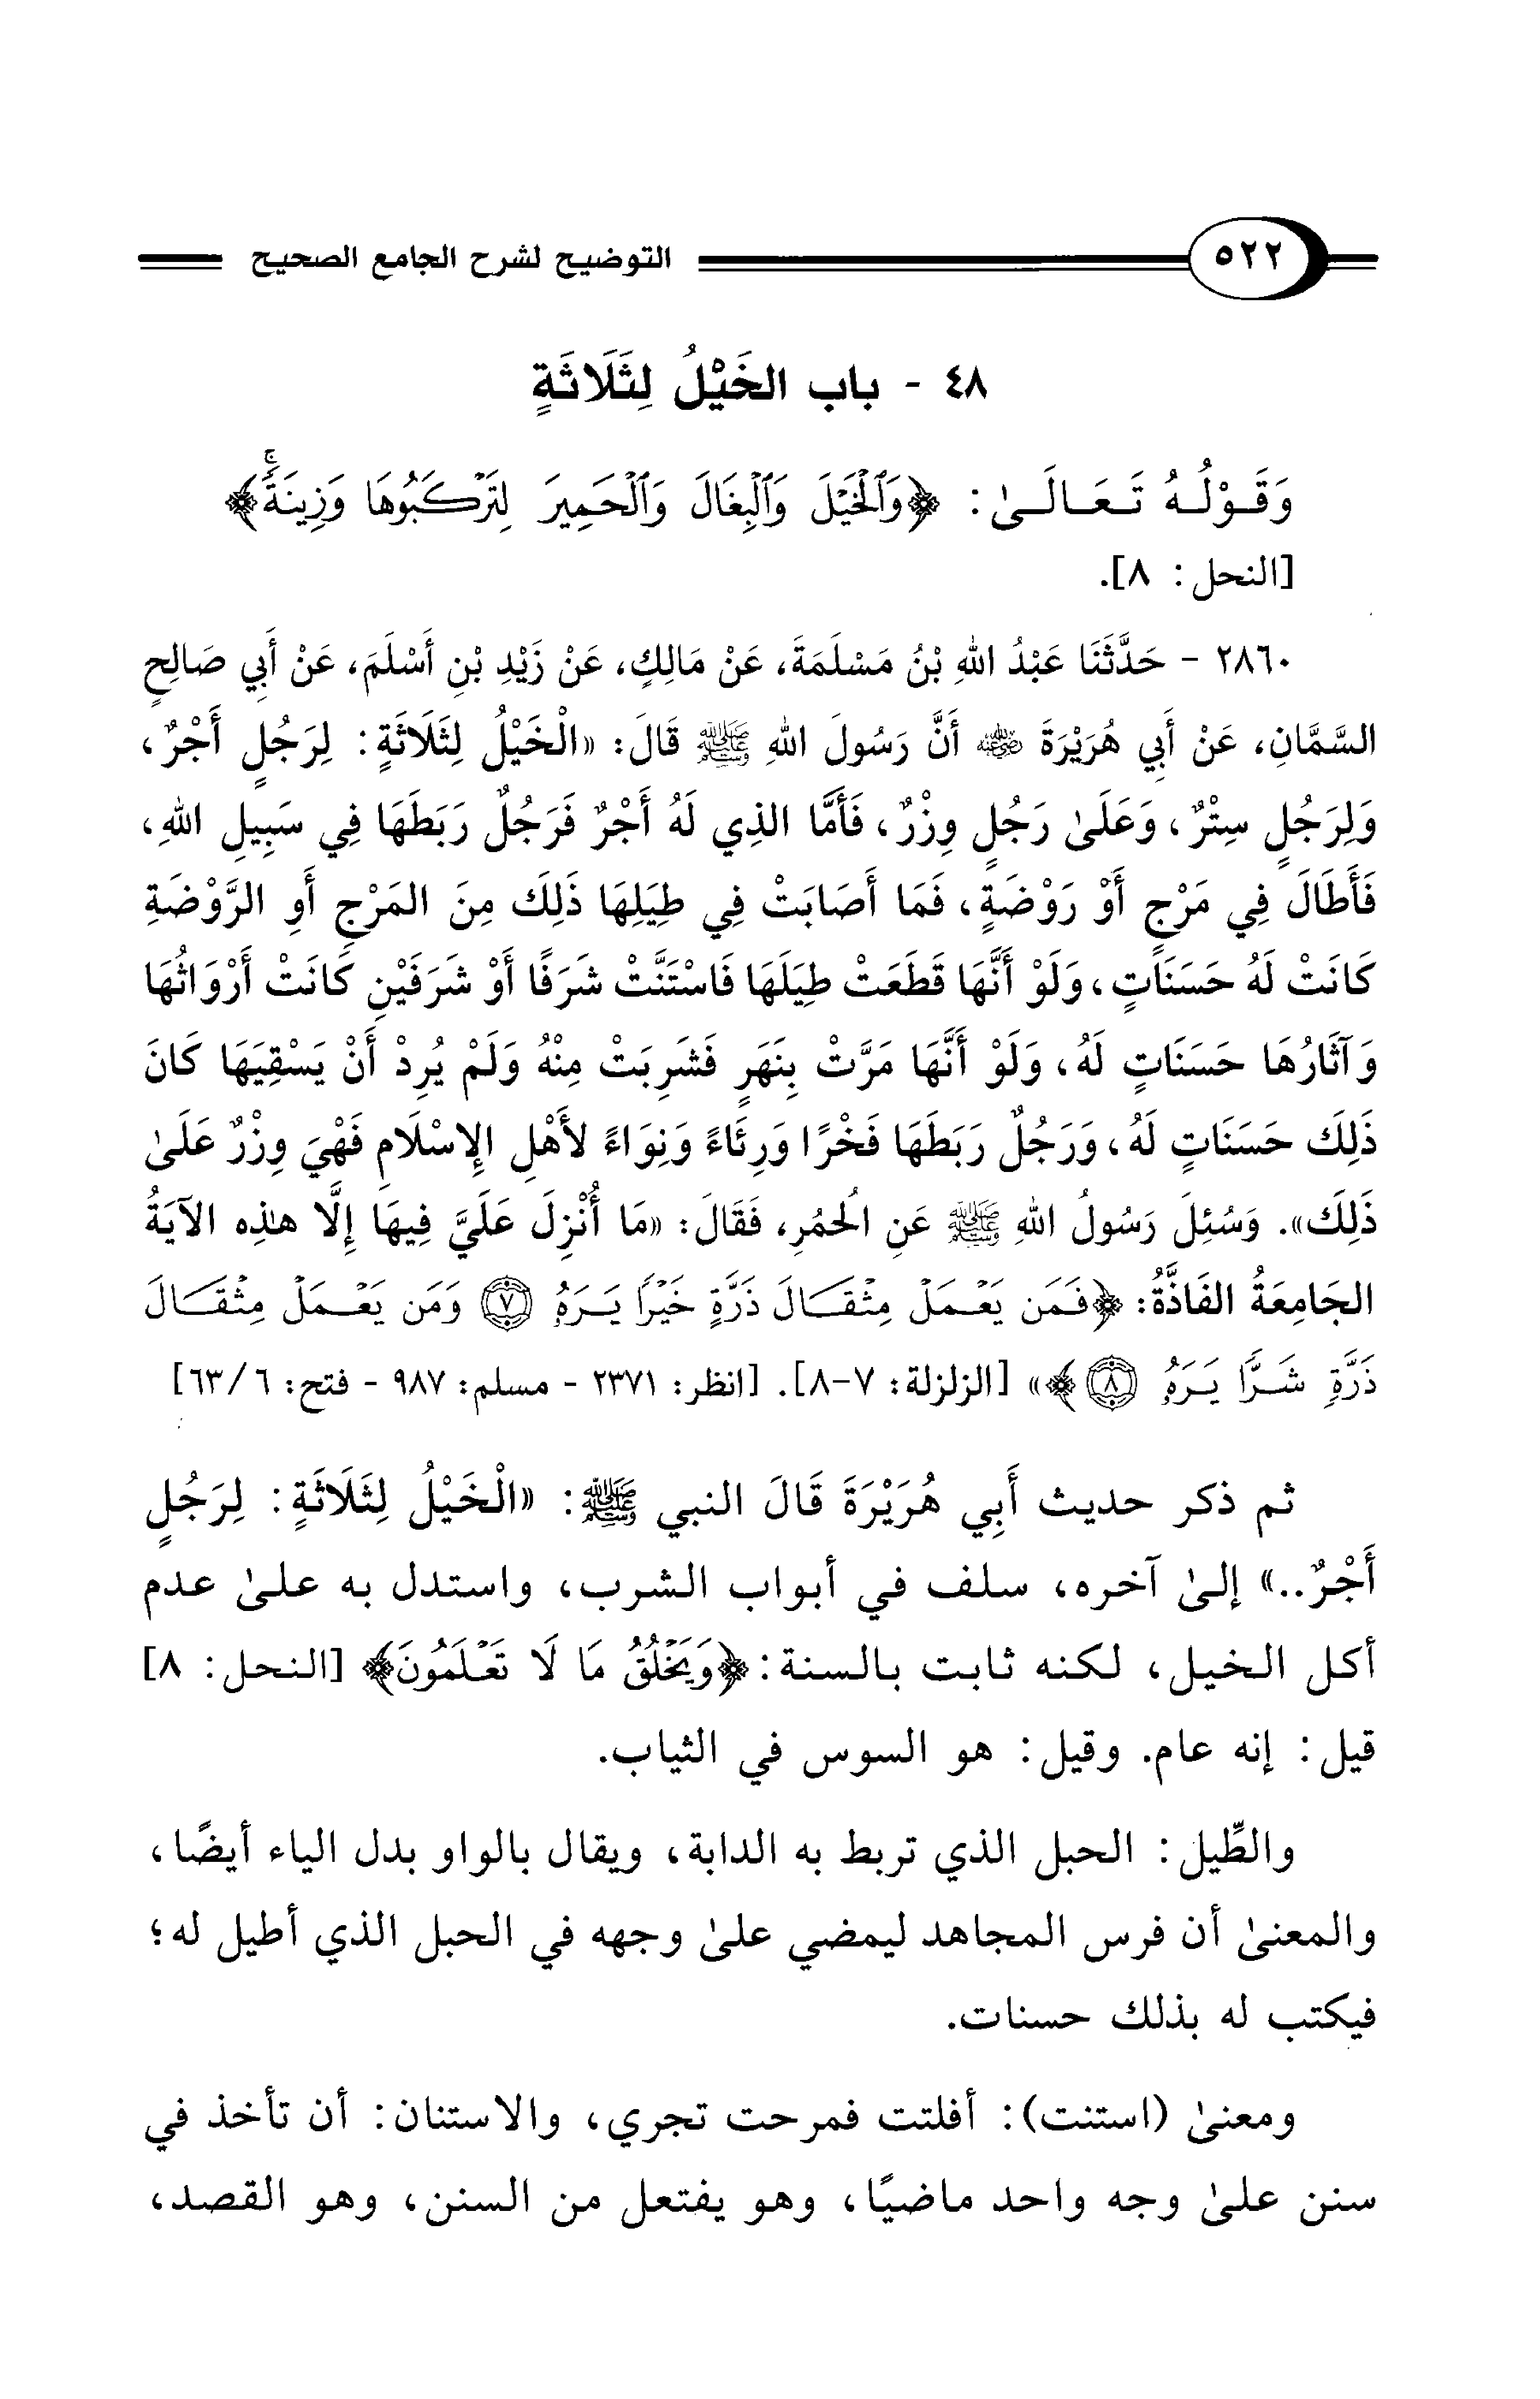 ٥٢٢ التوضيح لشرح الجامع الصحيح
٤٨ - باب الخَيْلُ لِثَلَاثَةٍ
وَقَوْلُهُ تَعَالَىٰ: ﴿وَٱلْخَيْلَ وَٱلْبِغَالَ وَٱلْحَمِيرَ لِتَرْكَبُوهَا وَزِينَةً ۚ﴾
[النحل: ٨].
٢٨٦٠ - حَدَّثَنَا عَبْدُ اللهِ بْنُ مَسْلَمَةَ، عَنْ مَالِكٍ، عَنْ زَيْدِ بْنِ أَسْلَمَ، عَنْ أَبِي صَالِحٍ
السَّمَّانِ، عَنْ أَبِي هُرَيْرَةَ رضي الله عنه أَنَّ رَسُولَ اللهِ ﷺ قَالَ: «الْخَيْلُ لِثَلَاثَةٍ: لِرَجُلٍ أَجْرٌ،
وَلِرَجُلٍ سِتْرٌ، وَعَلَىٰ رَجُلٍ وِزْرٌ، فَأَمَّا الذِي لَهُ أَجْرٌ فَرَجُلٌ رَبَطَهَا فِي سَبِيلِ اللهِ،
فَأَطَالَ فِي مَرْجٍ أَوْ رَوْضَةٍ، فَمَا أَصَابَتْ فِي طِيَلِهَا ذَلِكَ مِنَ المَرْجِ أَوِ الرَّوْضَةِ
كَانَتْ لَهُ حَسَنَاتٍ، وَلَوْ أَنَّهَا قَطَعَتْ طِيَلَهَا فَاسْتَنَّتْ شَرَفًا أَوْ شَرَفَيْنِ كَانَتْ أَرْوَاثُهَا
وَآثَارُهَا حَسَنَاتٍ لَهُ، وَلَوْ أَنَّهَا مَرَّتْ بِنَهَرٍ فَشَرِبَتْ مِنْهُ وَلَمْ يُرِدْ أَنْ يَسْقِيَهَا كَانَ
ذَلِكَ حَسَنَاتٍ لَهُ، وَرَجُلٌ رَبَطَهَا فَخْرًا وَرِئَاءً وَنِوَاءً لأَهْلِ الإِسْلَامِ فَهْيَ وِزْرٌ عَلَىٰ
ذَلِكَ». وَسُئِلَ رَسُولُ اللهِ ﷺ عَنِ الْحُمُرِ، فَقَالَ: «مَا أُنْزِلَ عَلَيَّ فِيهَا إِلَّا هذِه الآيَةُ
الجَامِعَةُ الفَاذَّةُ: ﴿فَمَن يَعْمَلْ مِثْقَالَ ذَرَّةٍ خَيْرًا يَرَهُ ٧ وَمَن يَعْمَلْ مِثْقَالَ
ذَرَّةٍ شَرًّا يَرَهُ ٨﴾» [الزلزلة: ٧-٨]. [انظر: ٢٣٧١ - مسلم: ٩٨٧ - فتح: ٦/ ٦٣]
ثم ذكر حديث أَبِي هُرَيْرَةَ قَالَ النبي ﷺ: «الْخَيْلُ لِثَلَاثَةٍ: لِرَجُلٍ
أَجْرٌ..» إلىٰ آخره، سلف في أبواب الشرب، واستدل به علىٰ عدم
أكل الخيل، لكنه ثابت بالسنة: ﴿وَيَخْلُقُ مَا لَا تَعْلَمُونَ﴾ [النحل: ٨]
قيل: إنه عام. وقيل: هو السوس في الثياب.
والطِّيل: الحبل الذي تربط به الدابة، ويقال بالواو بدل الياء أيضًا،
والمعنىٰ أن فرس المجاهد ليمضي علىٰ وجهه في الحبل الذي أطيل له؛
فيكتب له بذلك حسنات.
ومعنىٰ (استنت): أفلتت فمرحت تجري، والاستنان: أن تأخذ في
سنن علىٰ وجه واحد ماضيًا، وهو يفتعل من السنن، وهو القصد،